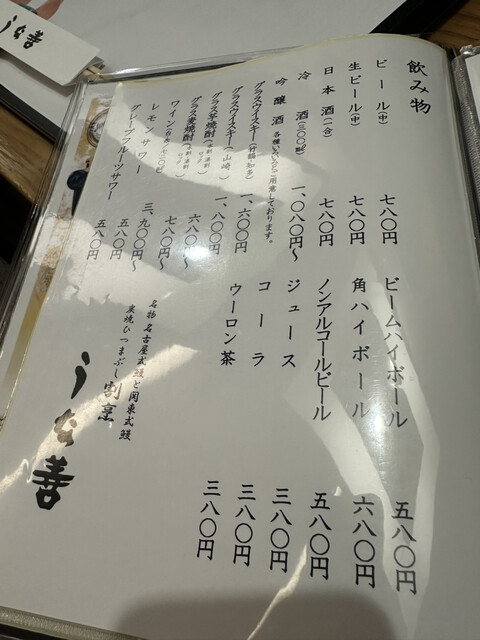 うな善
飲み物
ビール(中) 七八〇円
生ビール(中) 七八〇円
日本酒(一合) 七八〇円
冷酒(三〇〇㎖) 一、〇八〇円〜
吟醸酒 各種いろいろとご用意しております。
グラスウイスキー(竹鶴・知多) 一、六〇〇円
グラスウイスキー(山崎) 一、八〇〇円
グラス芋焼酎 六八〇円〜
グラス麦焼酎 七八〇円〜
ワイン 三、九〇〇円〜
レモンサワー 五八〇円
グレープフルーツサワー 五八〇円
ビームハイボール 五八〇円
角ハイボール 六八〇円
ノンアルコールビール 五八〇円
ジュース 三八〇円
コーラ 三八〇円
ウーロン茶 三八〇円
名物 名古屋式鰻と関東式鰻
炭焼ひつまぶし 割烹
うな善